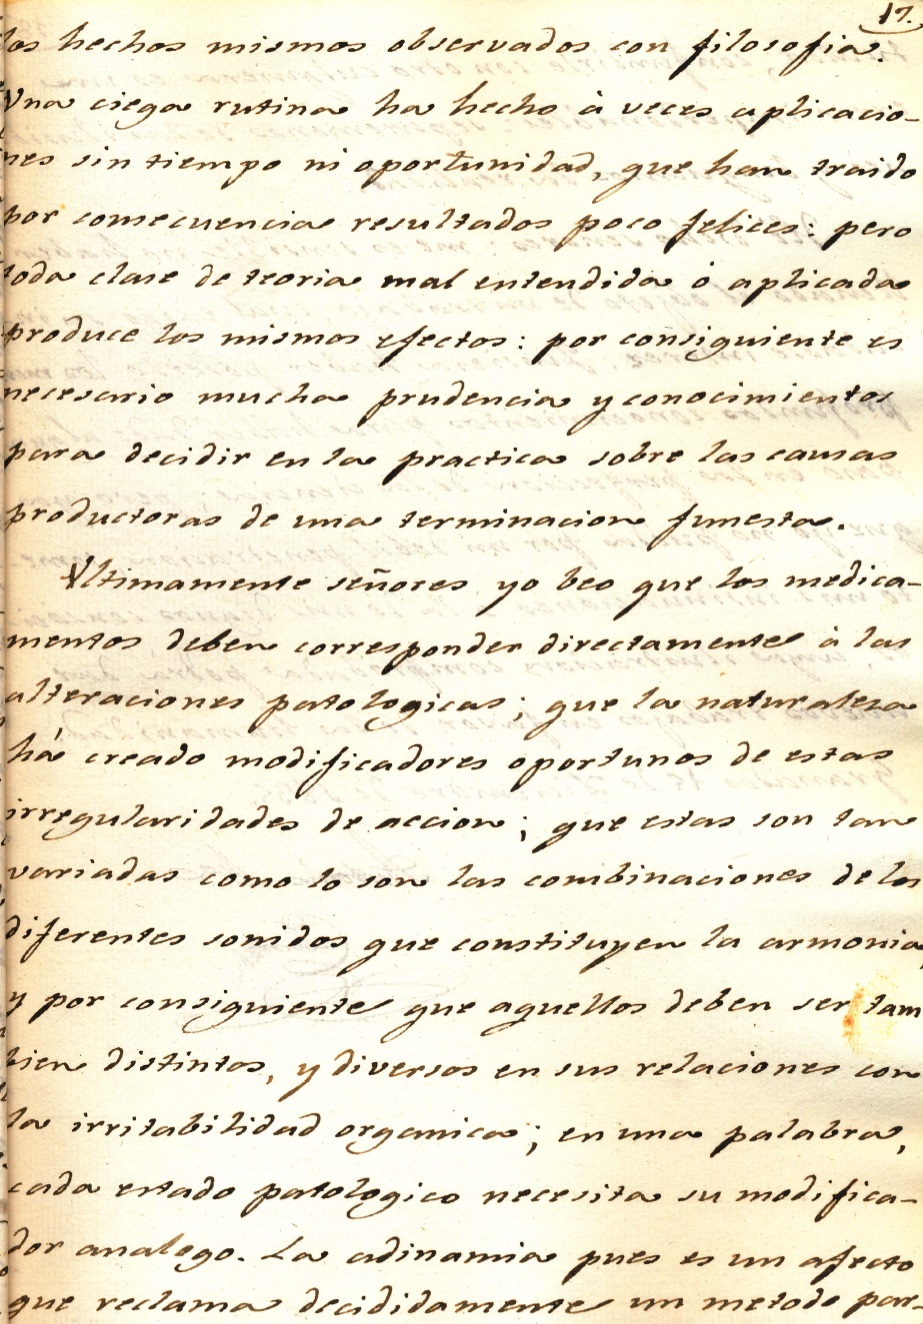 17.
los hechos mismos observados con filosofia.
Una ciega rutina ha hecho à veces aplicacio-
nes sin tiempo ni oportunidad, que han traido
por consecuencia resultados poco felices: pero
toda clase de teoria mal entendida ò aplicada
produce los mismos efectos: por consiguiente es
necesario mucha prudencia y conocimientos
para decidir en la practica sobre las causas
productoras de una terminacion funesta.
Ultimamente señores yo beo que los medica-
mentos deben corresponder directamente à las
alteraciones patologicas; que la naturalesa
há creado modificadores oportunos de estas
irregularidades de accion; que estas son tan
variadas como lo son las combinaciones de los
diferentes sonidos que constituyen la armonia,
y por consiguiente que aquellos deben ser tam
bien distintos, y diversos en sus relaciones con
la irritabilidad organica; en una palabra,
cada estado patologico necesita su modifica-
dor analogo. La adinamia pues es un afecto
que reclama decididamente un metodo par-